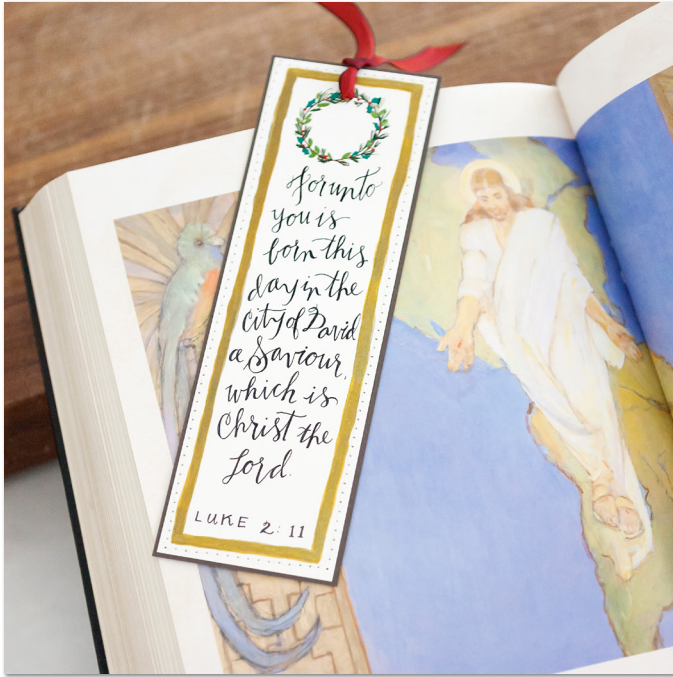 For unto
you is
born this
day in the
city of David
a Saviour,
which is
Christ the
Lord.
LUKE 2:11